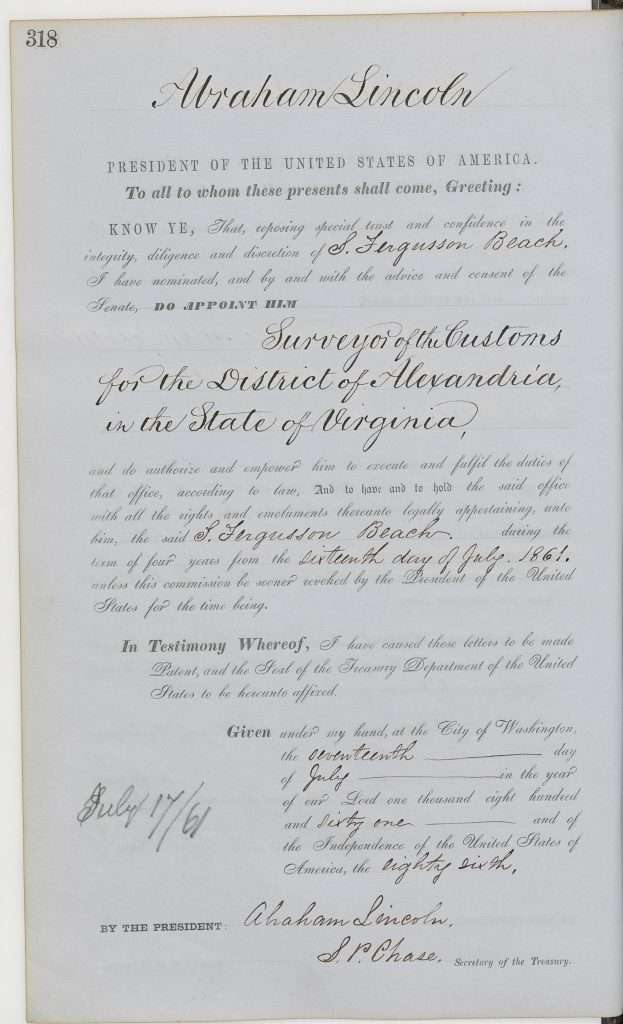 318
Abraham Lincoln
PRESIDENT OF THE UNITED STATES OF AMERICA.
To all to whom these presents shall come, Greeting:
KNOW YE, That, reposing special trust and confidence in the
integrity, diligence and discretion of S. Fergusson Beach.
I have nominated, and by and with the advice and consent of the
Senate, DO APPOINT HIM
Surveyor of the Customs
for the District of Alexandria,
in the State of Virginia,
and do authorize and empower him to execute and fulfil the duties of
that office, according to law, And to have and to hold the said office
with all the rights and emoluments thereunto legally appertaining, unto
him, the said S. Fergusson Beach. during the
term of four years from the sixteenth day of July. 1861.
unless this commission be sooner revoked by the President of the United
States for the time being.
In Testimony Whereof, I have caused these letters to be made
Patent, and the Seal of the Treasury Department of the United
States to be hereunto affixed.
Given under my hand, at the City of Washington,
the seventeenth day
of July in the year
of our Lord one thousand eight hundred
and sixty one and of
the Independence of the United States of
America, the eighty sixth.
July 17/61
BY THE PRESIDENT: Abraham Lincoln.
S. P. Chase. Secretary of the Treasury.